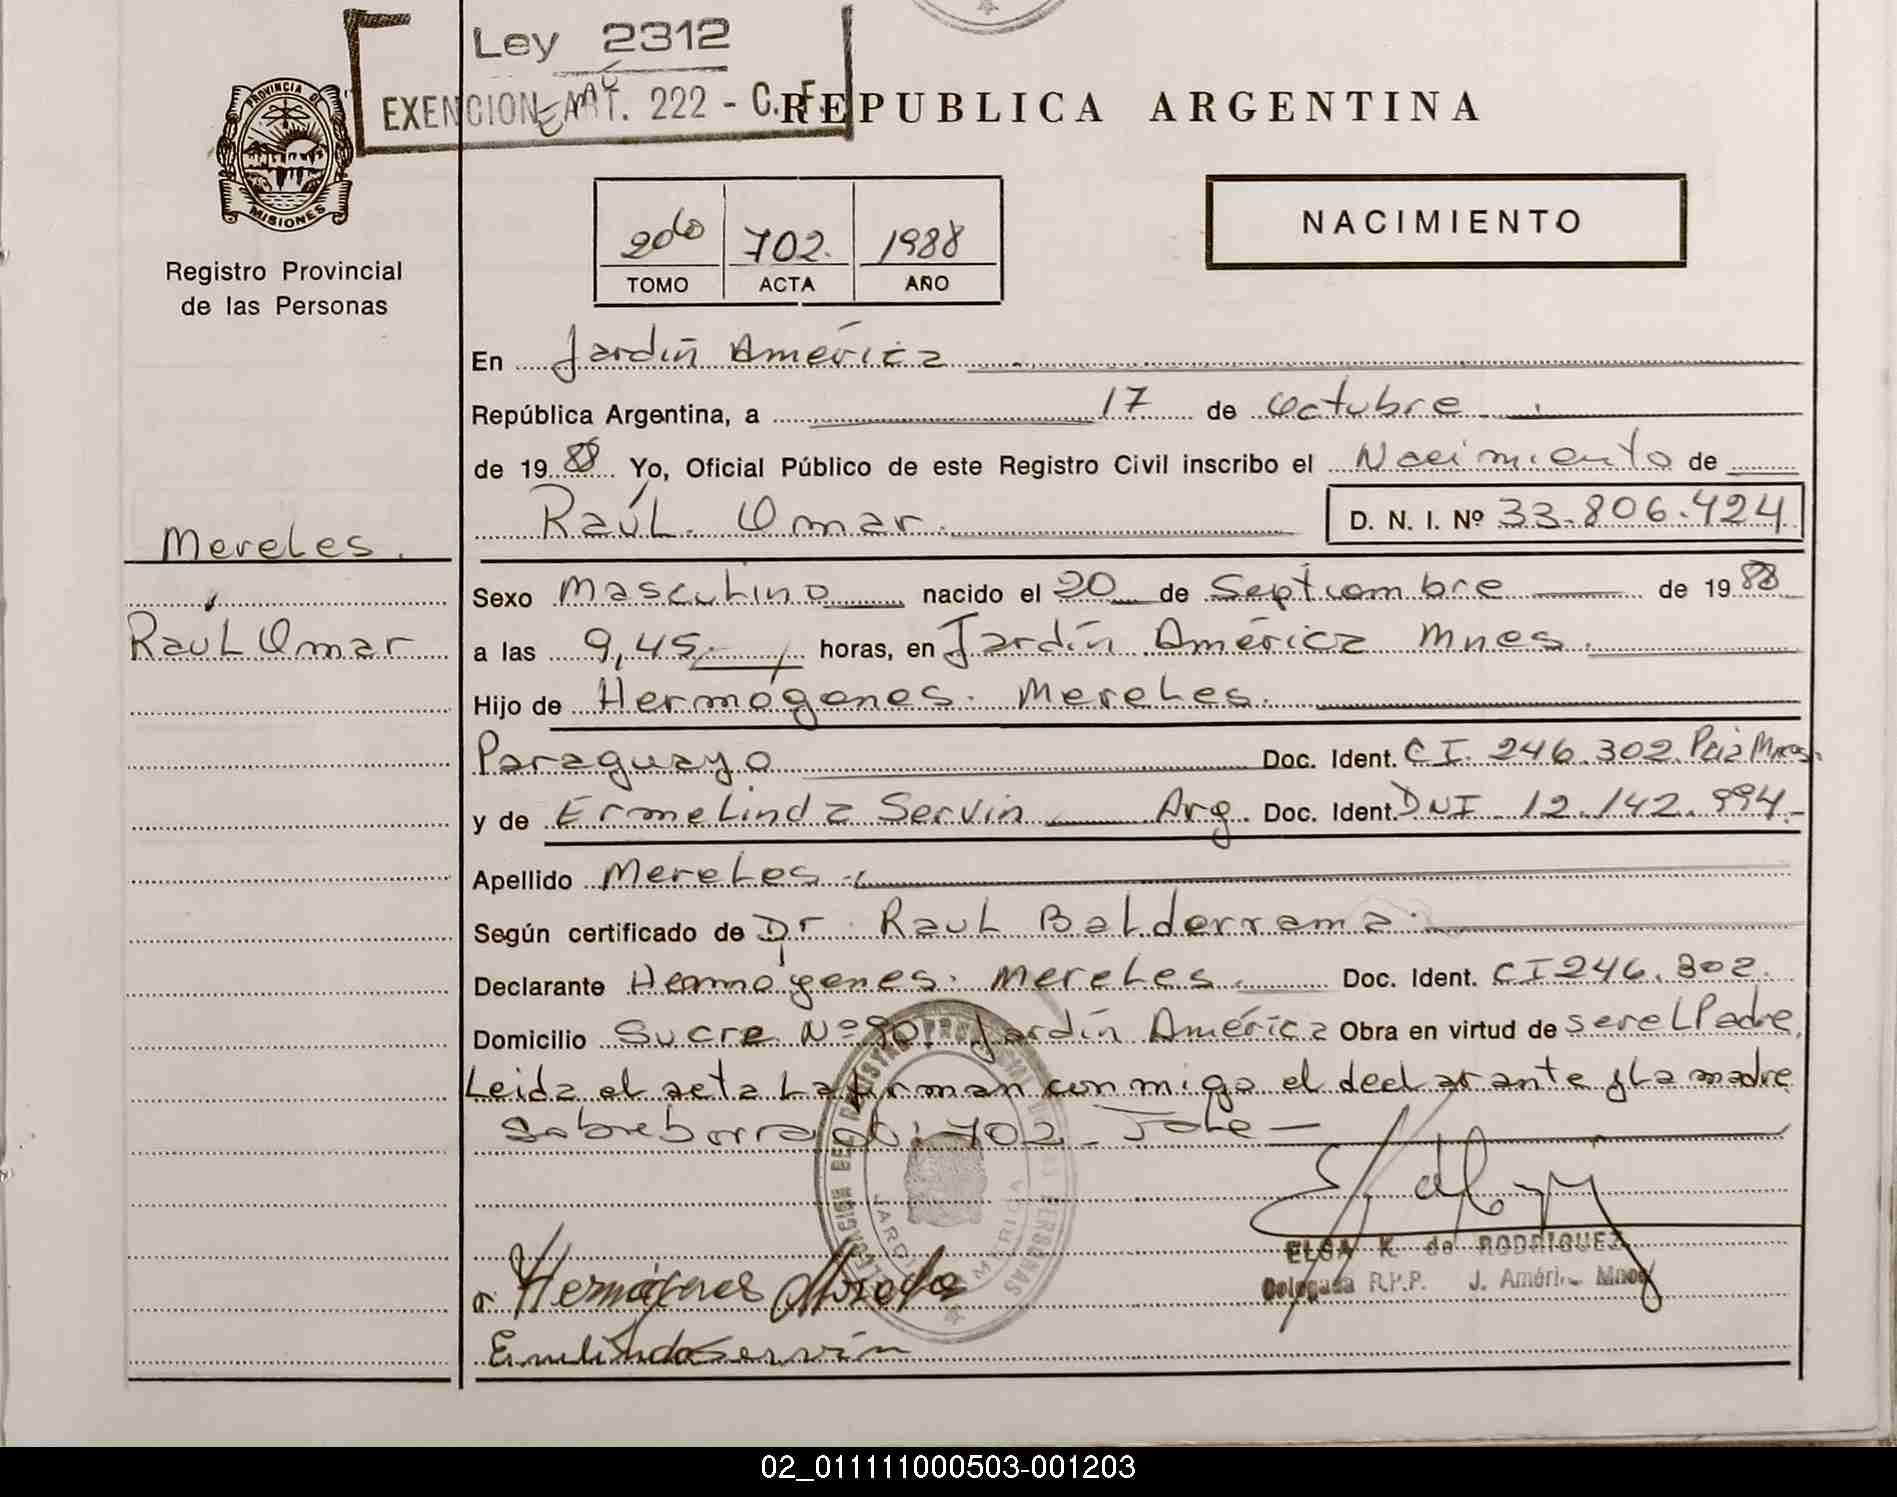 Ley 2312
EXENCION ART. 222 - C. F.
REPUBLICA ARGENTINA
PROVINCIA DE
MISIONES
Registro Provincial
de las Personas
702. 1988
TOMO ACTA AÑO
NACIMIENTO
En Jardín América
República Argentina, a 17 de Octubre
de 19 88 Yo, Oficial Público de este Registro Civil inscribo el Nacimiento de
Raúl Omar
D. N. I. Nº 33.806.424
Mereles.
Raúl Omar
Sexo Masculino nacido el 20 de Septiembre de 19 88
a las 9,45 horas, en Jardín América Mnes.
Hijo de Hermógenes Mereles.
Paraguayo Doc. Ident. CI. 246.302 Mnes.
y de Ermelinda Servin Arg. Doc. Ident. DNI 12.142.994.-
Apellido Mereles
Según certificado de Dr. Raul Balderrama.
Declarante Hermógenes Mereles Doc. Ident. CI 246.302.
Domicilio Sucre Nº 90 Jardín América Obra en virtud de ser el Padre.
Leida el acta la firman conmigo el declarante y la madre
Sobreborrado: 702 Vale —
ELSA K. de RODRIGUEZ
Delegada R.P.P. J. América Mnes
Hermógenes Mereles
Ermelinda Servin
02_011111000503-001203